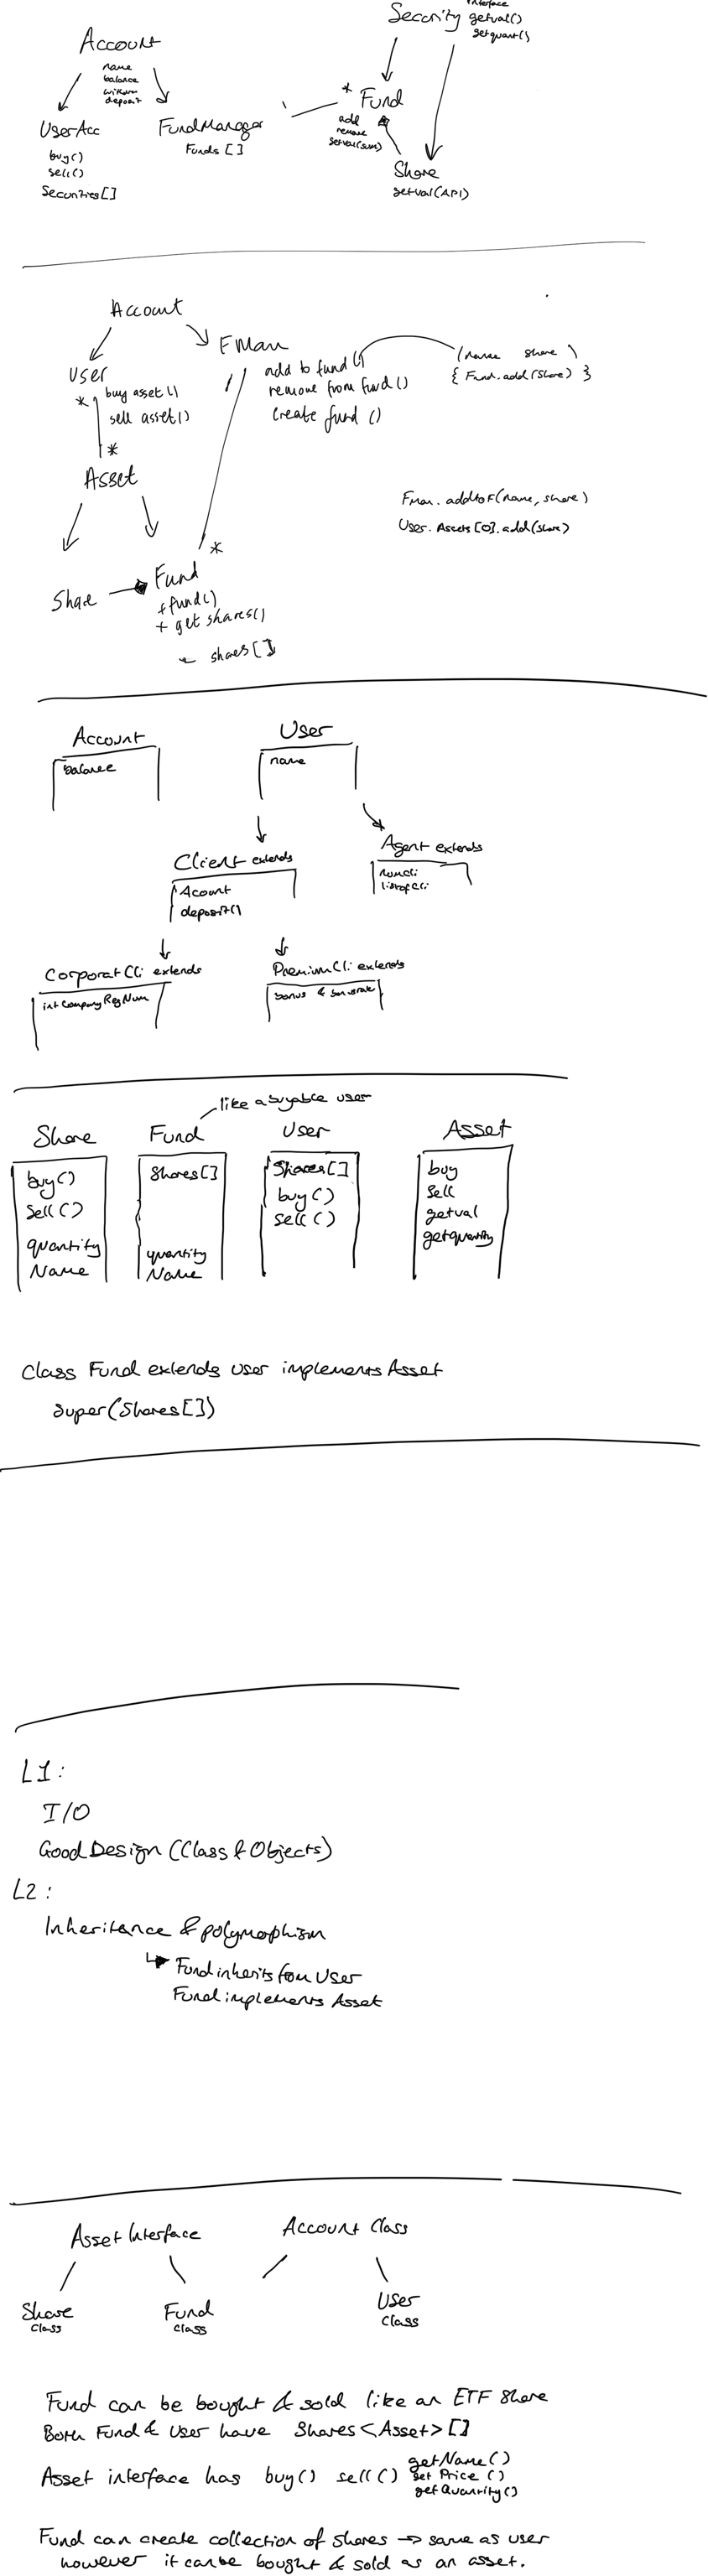 interface
Security getval()
getquant()
Account
name
balance
withdraw
deposit
* Fund
UserAcc
FundManager
add
remove
getval(sum)
Funds []
buy()
sell()
Securities[]
Share
getval(API)
Account
FMan
User
add to fund()
remove from fund()
create fund ()
(name share )
{ Fund.add(share) }
* buy asset()
sell asset()
*
Asset
Fman.addtoF(name, share)
User.Assets[0].add(share)
*
Share
Fund
+fund()
+ get shares()
- shares[]
Account
balance
User
name
Client extends
Acount
deposit()
Agent extends
numcli
listofcli
CorporatCli extends
int CompanyRegNum
PremiumCli extends
bonus & bonusrate
like a buyable user
Share
Fund
User
Asset
buy()
sell()
quantity
Name
Shares[]
quantity
Name
Shares[]
buy()
sell()
buy
sell
getval
getquantity
Class Fund extends user implements Asset
super(Shares[])
L1:
I/O
Good Design (Class & Objects)
L2:
Inheritance & polymorphism
Fund inherits from User
Fund implements Asset
Asset Interface
Account Class
Share
class
Fund
class
User
class
Fund can be bought & sold like an ETF share
Both Fund & User have Shares<Asset>[]
Asset interface has buy() sell() getName()
get Price ()
getQuantity()
Fund can create collection of shares → same as user
however it can be bought & sold as an asset.